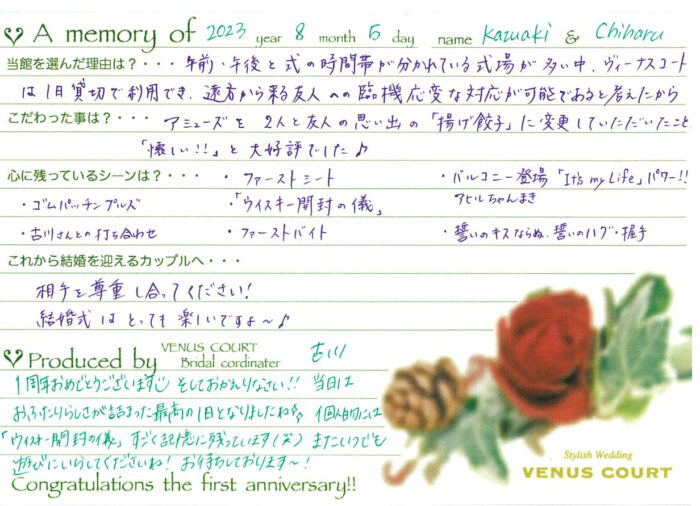 A memory of 2023 year 8 month 5 day name Kazuaki & Chiharu
当館を選んだ理由は？・・・午前・午後と式の時間帯が分かれている式場が多い中、ヴィーナスコート
は1日貸切で利用でき、遠方から来る友人への臨機応変な対応が可能であると考えたから
こだわった事は？・・・アミューズを2人と友人の思い出の「揚げ餃子」に変更していただいたこと
「懐しい!!」と大好評でした♪
心に残っているシーンは？・・・ ・ファーストミート ・バルコニー登場「It's my Life」パワー!!
・ゴムパッチンプルズ ・「ウイスキー開封の儀」 アヒルちゃんまき
・古川さんとの打ち合わせ ・ファーストバイト ・誓いのキスならぬ、誓いのハグ・握手
これから結婚を迎えるカップルへ・・・
相手を尊重し合ってください!
結婚式はとっても楽しいですよ〜♪
Produced by VENUS COURT Bridal cordinater 古川
1周年おめでとうございます そしておかえりなさい!! 当日は
おふたりらしさが詰まった最高の1日となりましたね 個人的には
「ウイスキー開封の儀」すごく記憶に残っています(笑) またいつでも
遊びにいらしてくださいね! お待ちしております〜!
Congratulations the first anniversary!!
Stylish Wedding
VENUS COURT